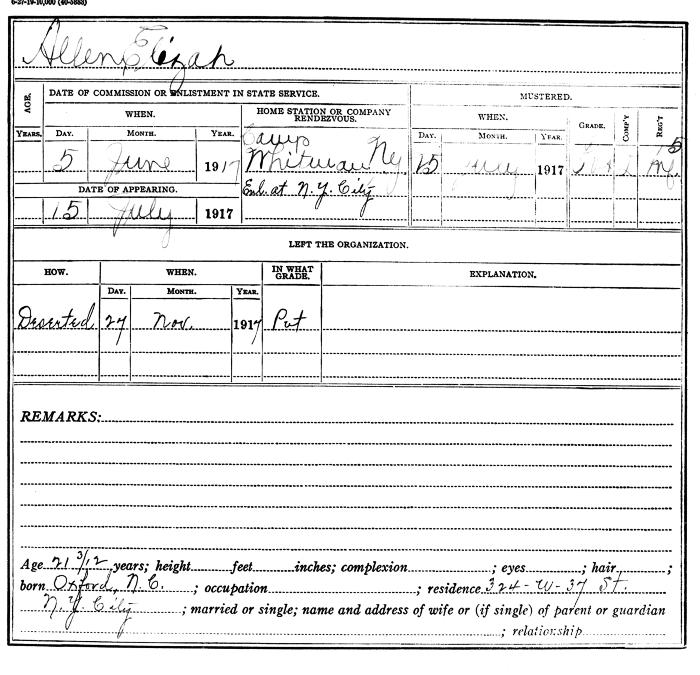 6-27-19-10,000 (40-5883)
Allen, Elizah
AGE.
DATE OF COMMISSION OR ENLISTMENT IN STATE SERVICE.
HOME STATION OR COMPANY RENDEZVOUS.
MUSTERED.
WHEN.
WHEN.
GRADE.
COMP'Y
REG'T
YEARS.
DAY.
MONTH.
YEAR.
DAY.
MONTH.
YEAR.
5 June 1917
Camp
Whitman Ny
15 July 1917
15
Inf.
DATE OF APPEARING.
Enl. at N.Y. City
15 July 1917
LEFT THE ORGANIZATION.
HOW.
WHEN.
IN WHAT GRADE.
EXPLANATION.
DAY.
MONTH.
YEAR.
Deserted 27 Nov. 1917 Pvt
REMARKS:
Age 21 3/12 years; height feet inches; complexion ; eyes ; hair ;
born Oxford, N.C. ; occupation ; residence 324-W-37 St.
N.Y. City ; married or single; name and address of wife or (if single) of parent or guardian
; relationship